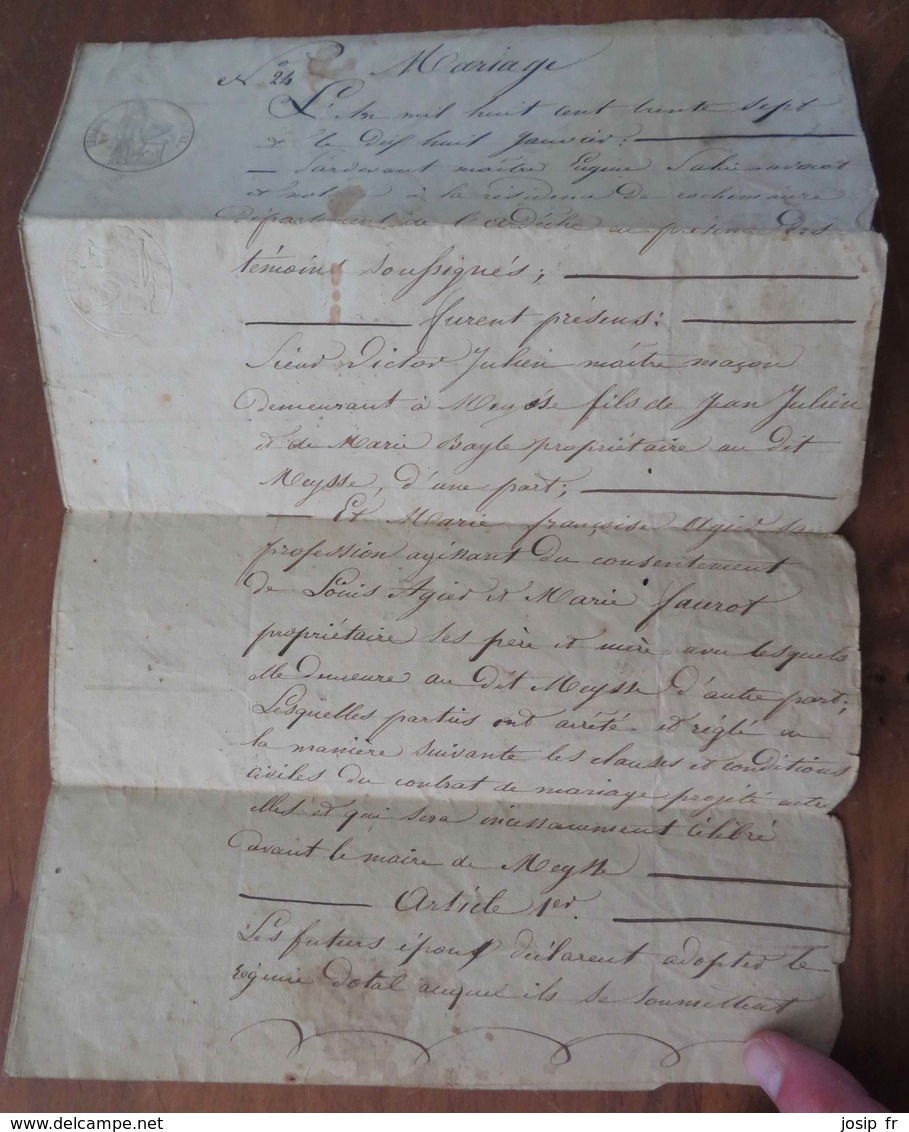 N° 24 Mariage
L'An mil huit cent trente sept
et le dix huit Janvier:
Pardevant maître Eugène avocat
et notaire à la résidence de rochemaure
Département de l'ardèche en présence des
témoins soussignés;
furent présens:
Sieur Victor Julien maître maçon
demeurant à Meysse fils de Jean Julien
et de Marie Bayle propriétaire au dit
Meysse, d'une part;
Et Marie françoise Agier sans
profession agissant du consentement
de Louis Agier et Marie faurot
propriétaire ses père et mère avec lesquels
elle demeure au dit Meysse d'autre part;
Lesquelles parties ont arrêté et réglé en
la manière suivante les clauses et conditions
civiles du contrat de mariage projeté entre
elles et qui sera incessamment célébré
devant le maire de Meysse
Article 1er.
Les futurs époux déclarent adopter le
régime dotal auquel ils se soumettent
josip fr